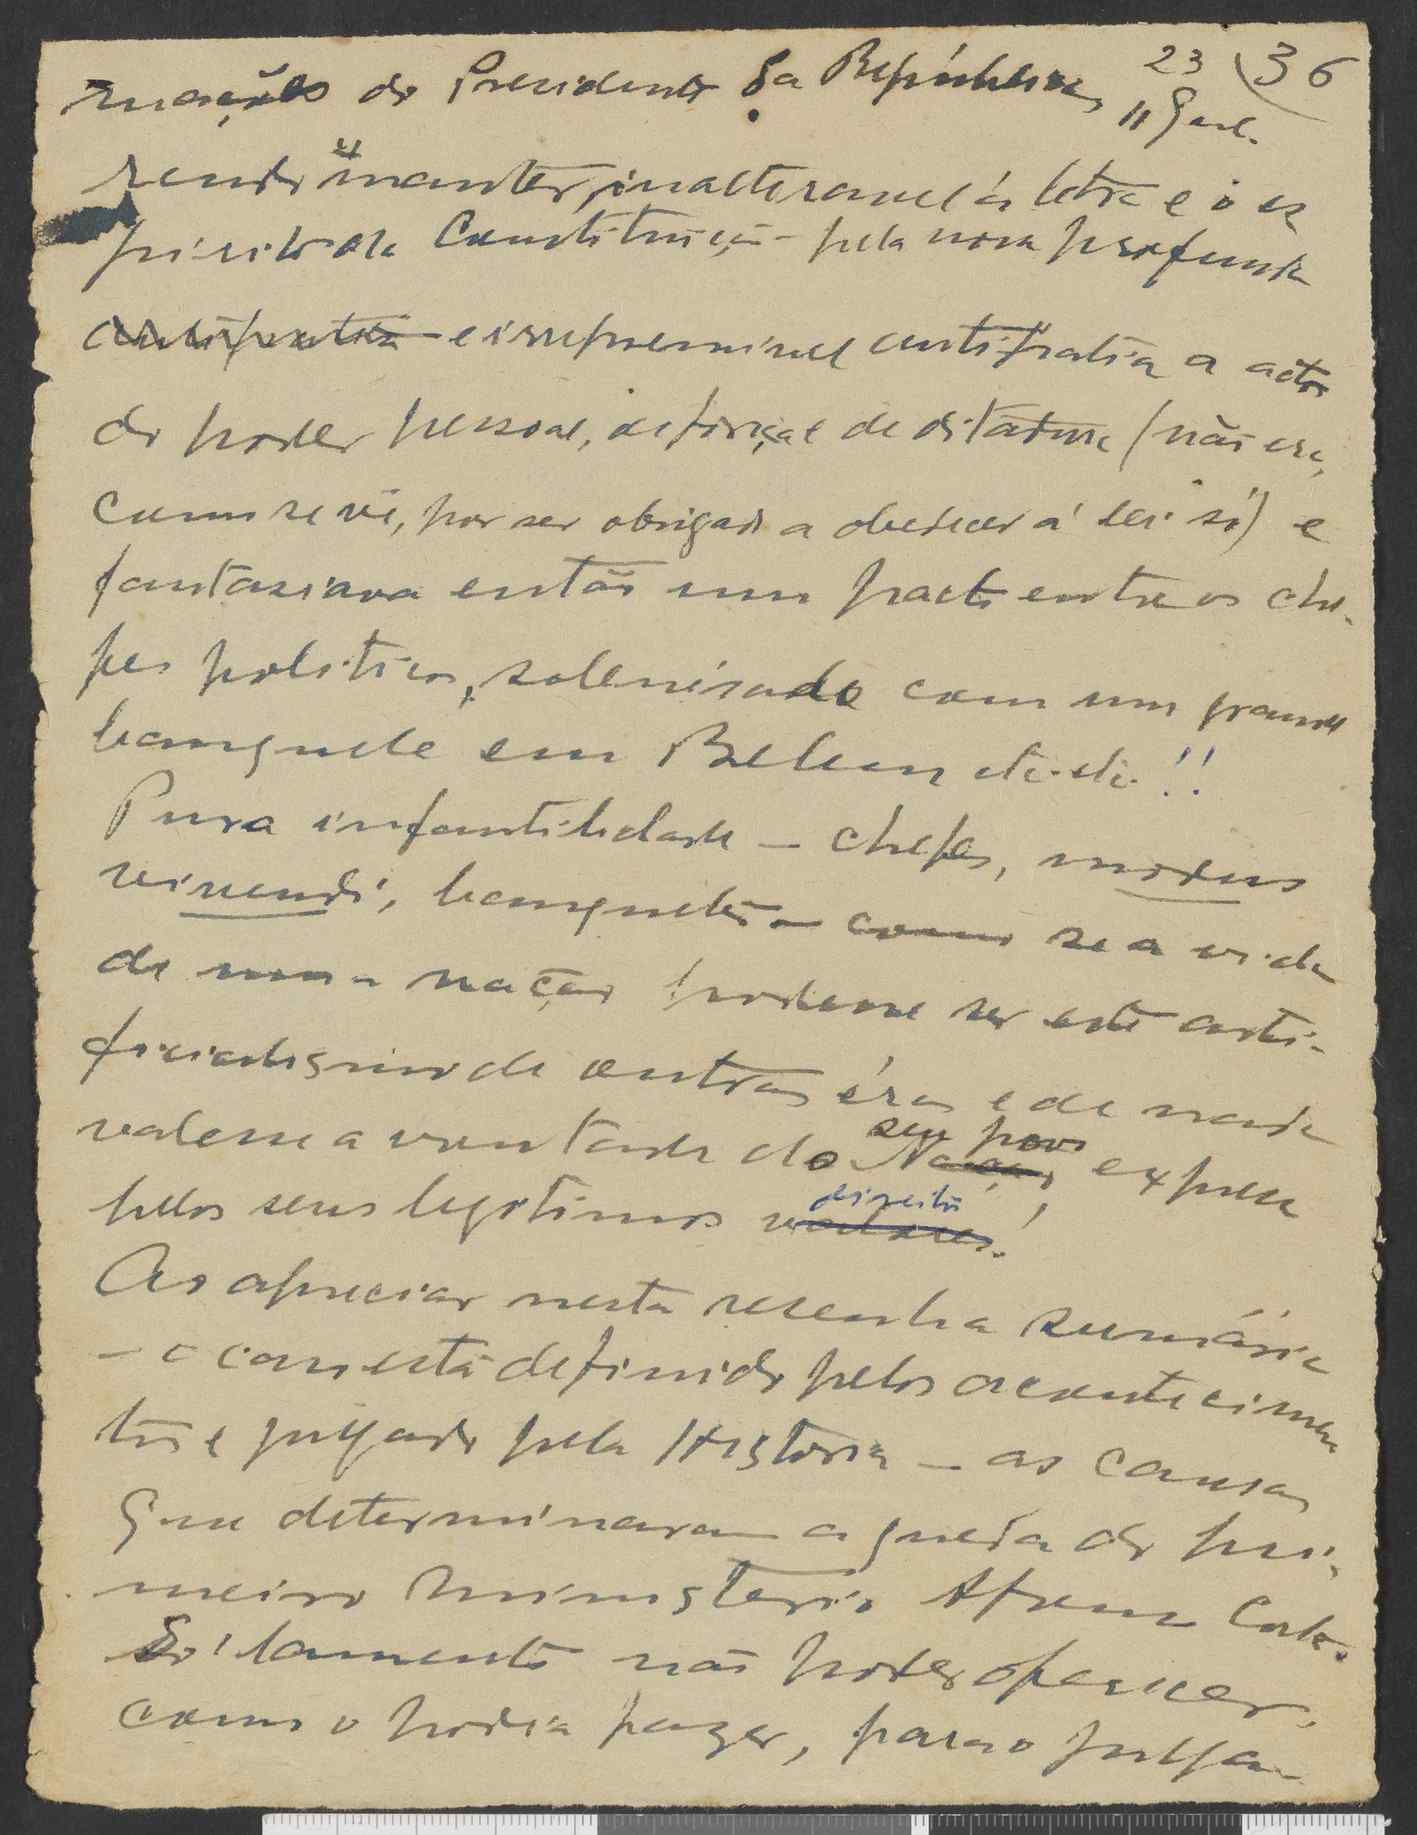 mações do Presidente da República, 23 36
11 Gal.
rendo manter, inalteravel á letra e o es
pirito da Constituição - pela nova profunda
antipatia e irrepremivel antipatia a actos
do poder pessoal, de força e de ditadura (não era,
como se vê, por ser obrigado a obedecer á lei só) e
fantasiava então um pacto entre os che-
fes politicos, solenisado com um grande
banquete em Belem etc. etc. !!
Pura infantilidade - chefes, modus
vivendi, banquetes - como se a vida
de uma nação podesse ser este arti-
ficialismo de outras éras e de nada
valesse a vontade do Nação, seu povo expressa
pelos seus legitimos votores. direitos!
Ao apreciar nesta resenha sumária
- o caso está definido pelos acontecimen
tos e julgado pela Historia - as causas
que determinaram a queda do pri-
meiro ministerio Afonso Costa.
Só lamento não poder oferecer,
como o podia fazer, para o julga-